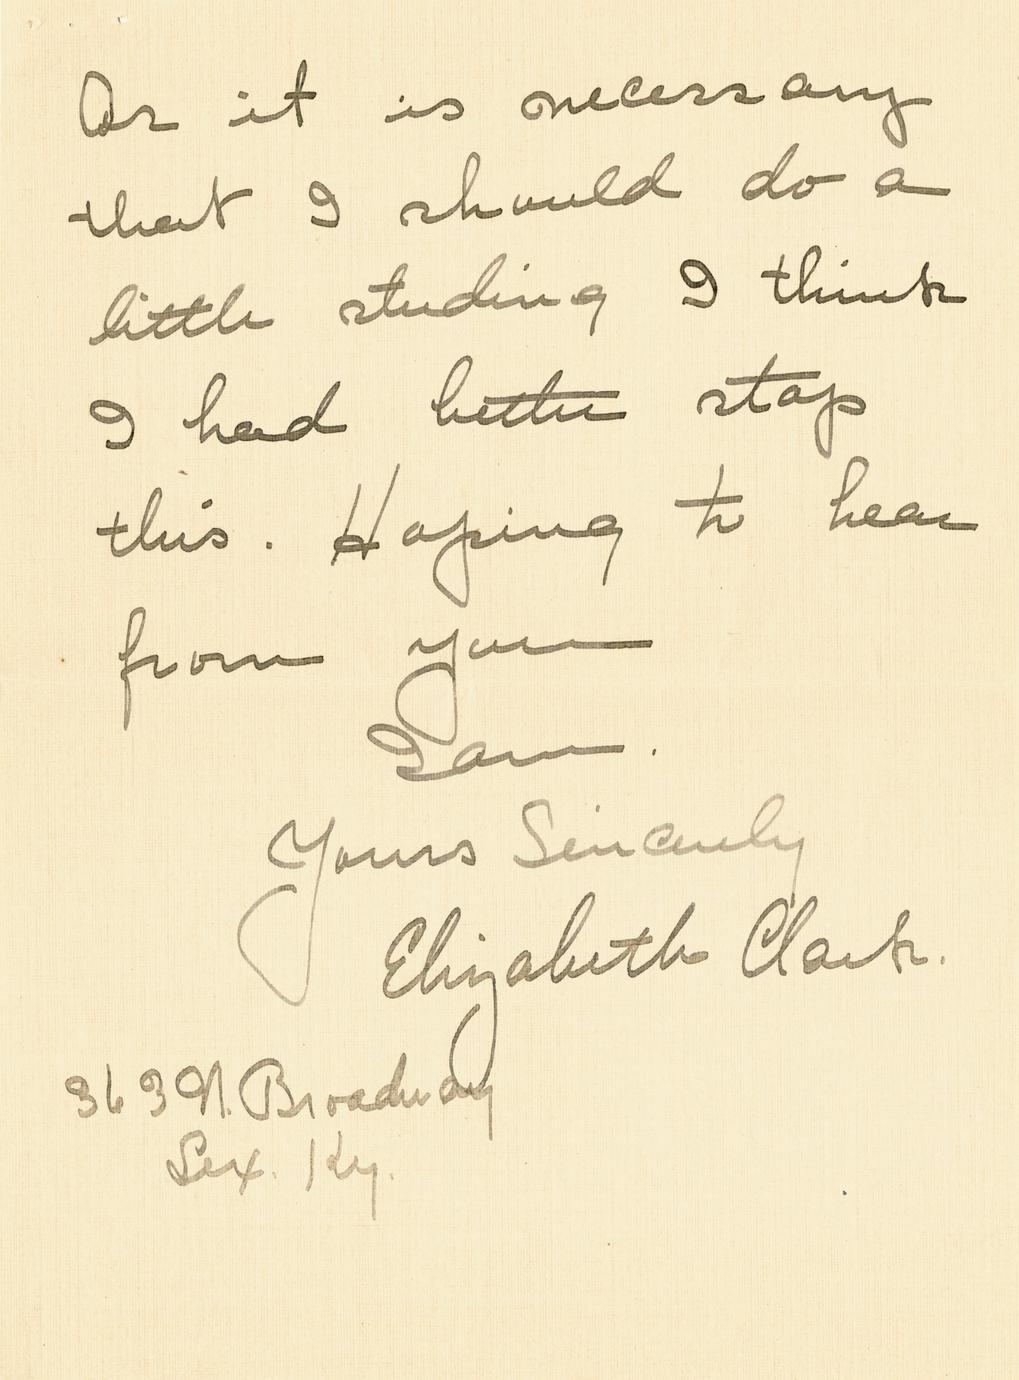 As it is necessary
that I should do a
little studing I think
I had better stop
this. Hoping to hear
from you
I am.
Yours Sincerely
Elizabeth Clark.
363 N. Broadway
Lex. Ky.